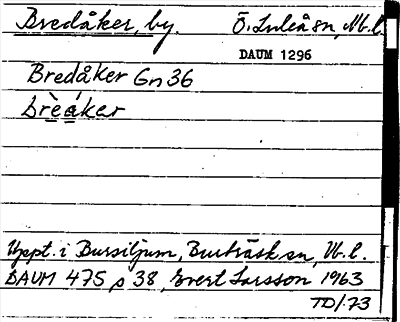 Bredåker, by. Ö. Luleå sn, Nb.l.
DAUM 1296
Bredåker Gn 36
brèákεr
Uppt. i Bursiljum, Burträsk sn, Vb.l.
DAUM 475 s 38, Evert Larsson 1963
TD/-73